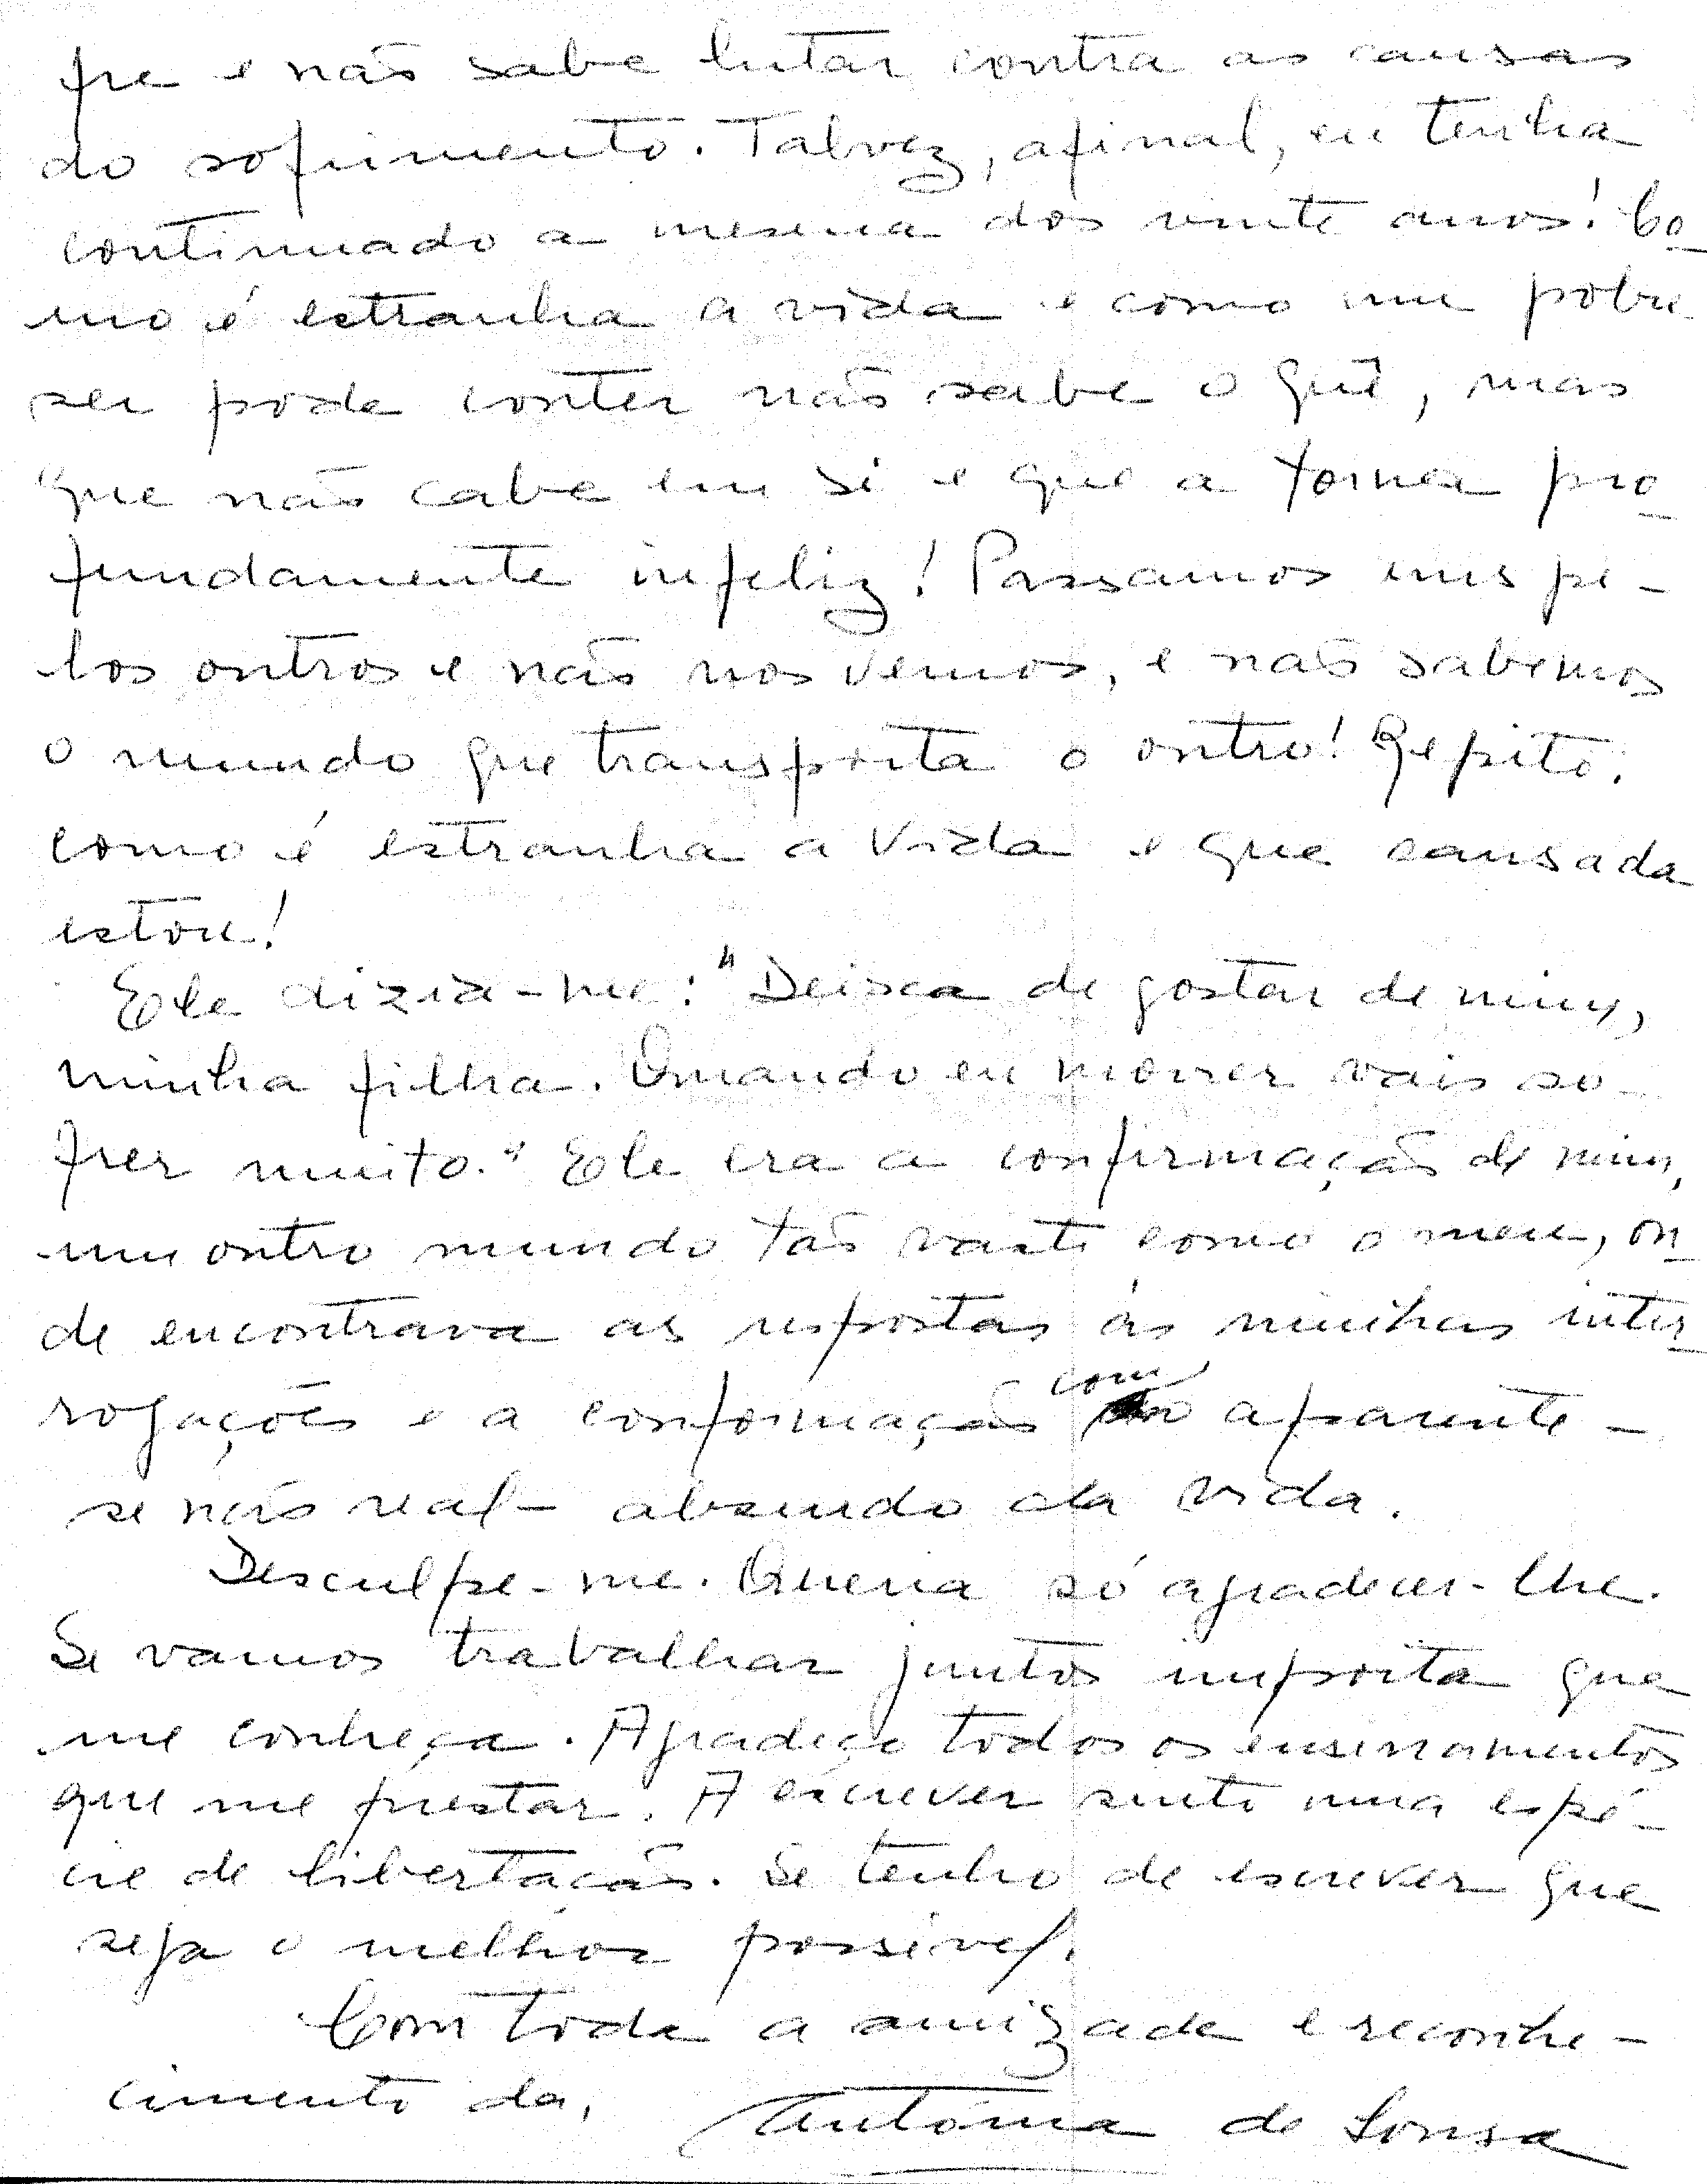 fre e não sabe lutar contra as causas
do sofrimento. Talvez, afinal, eu tenha
continuado a mesma dos vinte anos! Co-
mo é estranha a vida e como um pobre
ser pode conter não sabe o quê, mas
que não cabe em si e que a torna pro-
fundamente infeliz! Passamos uns pe-
los outros e não nos vemos, e não sabemos
o mundo que transporta o outro! Repito:
como é estranha a vida e que cansada
estou!
Ele dizia-me: "Deixa de gostar de mim,
minha filha. Quando eu morrer vais so-
frer muito." Ele era a confirmação de mim,
um outro mundo tão vasto como o meu, on-
de encontrava as respostas às minhas inter-
rogações e a conformação com o aparente -
se não real - absurdo da vida.
Desculpe-me. Queria só agradecer-lhe.
Se vamos trabalhar juntos importa que
me conheça. Agradeço todos os ensinamentos
que me prestar. A escrever sinto uma espé-
cie de libertação. Se tenho de escrever que
seja o melhor possível.
Com toda a amizade e reconhe-
cimento da,
Antónia de Sousa